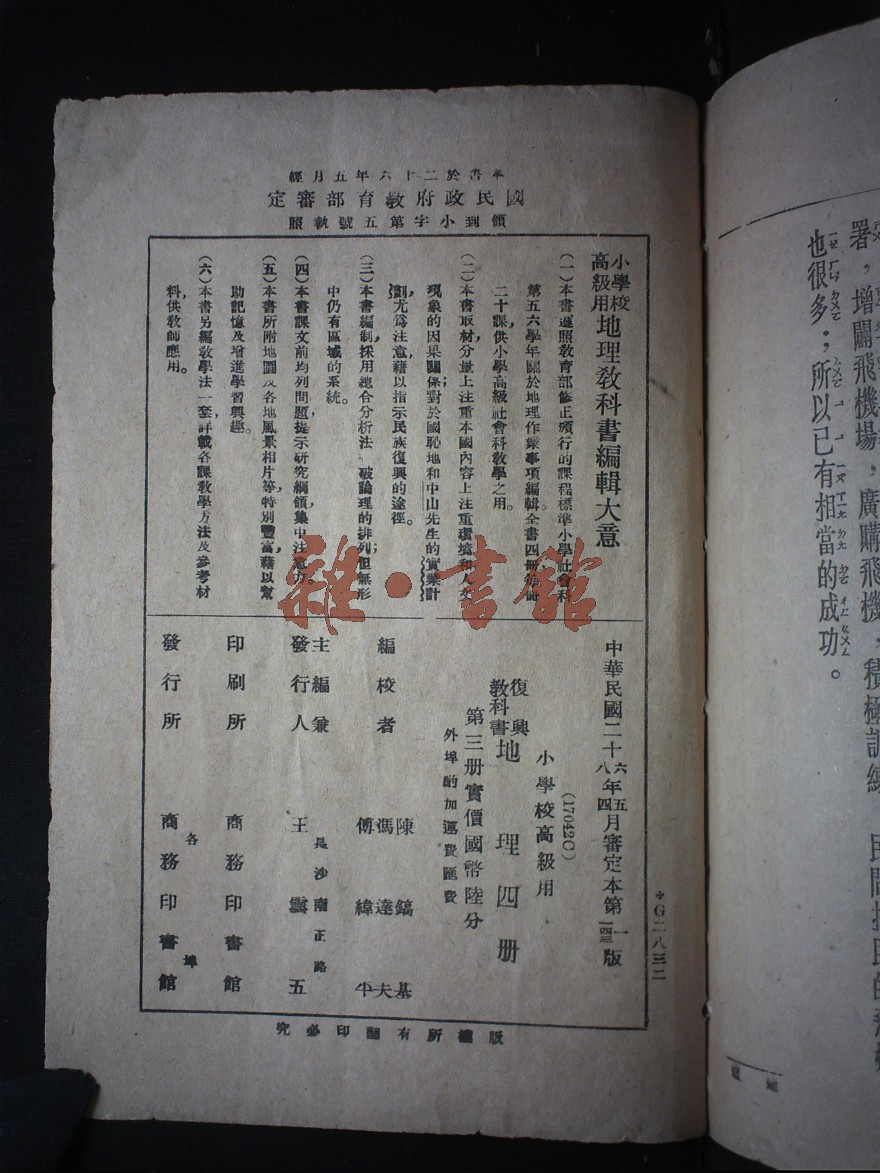 本書於二十六年五月經
國民政府教育部審定
領到小字第五號執照
小學校高級用地理教科書編輯大意
(一)本書遵照教育部修正頒行的課程標準小學社會科
第五六學年關於地理作業事項編輯，全書四冊，每冊
二十課，供小學高級社會科教學之用。
(二)本書取材，分量上注重本國，內容上注重環境和人文
現象的因果關係；對於國恥地和中山先生的實業計
劃，尤為注意，藉以指示民族復興的途徑。
(三)本書編制，採用總合分析法，破論理的排列；但無形
中仍有區域的系統。
(四)本書課文前均列問題，提示研究綱領，集中注意力。
(五)本書所附地圖及各地風景相片等，特別豐富，藉以幫
助記憶及增進學習興趣。
(六)本書另編教學法一套，詳載各課教學方法及參考材
料，供教師應用。
中華民國二十六年五月審定本第一版
八四
(17042C)
小學校高級用
復興教科書 地理四冊
第三冊實價國幣陸分
外埠酌加運費匯費
編校者 陳鎬基 馮達夫 傅緯平
主編兼發行人 王雲五
長沙南正路
印刷所 商務印書館
發行所 各埠商務印書館
版權所有翻印必究
＊G二八三二
雜·書館
署，增闢飛機場，廣購飛機，積極訓練
也很多；所以已有相當的成功。